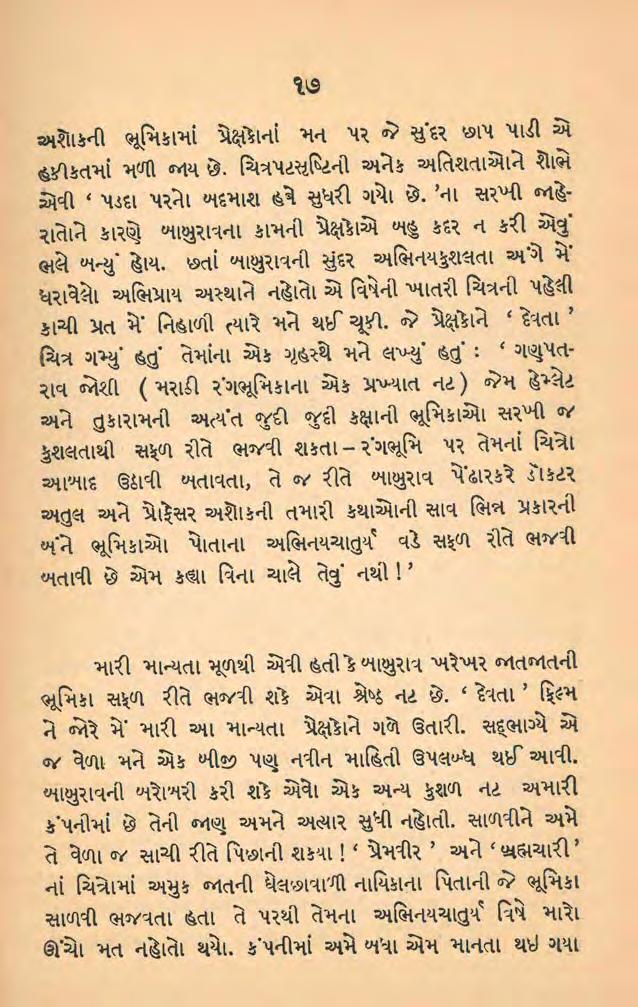 ૧૭
અશોકની ભૂમિકામાં પ્રેક્ષકોનાં મન પર જે સુંદર છાપ પાડી એ
હકીકતમાં મળી જાય છે. ચિત્રપટસૃષ્ટિની અનેક અતિશતાઓને શોભે
એવી ‘ પડદા પરનો બદમાશ હવે સુધરી ગયો છે. ’ના સરખી જાહે-
રાતોને કારણે બાબુરાવના કામની પ્રેક્ષકોએ બહુ કદર ન કરી એવું
ભલે બન્યું હોય. છતાં બાબુરાવની સુંદર અભિનયકુશલતા અંગે મેં
ધરાવેલો અભિપ્રાય અસ્થાને નહોતો એ વિષેની ખાતરી ચિત્રની પહેલી
કાચી પ્રત મેં નિહાળી ત્યારે મને થઈ ચૂકી. જે પ્રેક્ષકોને ‘ દેવતા ’
ચિત્ર ગમ્યું હતું તેમાંના એક ગૃહસ્થે મને લખ્યું હતું : ‘ ગણપત-
રાવ જોશી ( મરાઠી રંગભૂમિકાના એક પ્રખ્યાત નટ ) જેમ હેમ્લેટ
અને તુકારામની અત્યંત જુદી જુદી કક્ષાની ભૂમિકાઓ સરખી જ
કુશલતાથી સફળ રીતે ભજવી શકતા – રંગભૂમિ પર તેમનાં ચિત્રો
આબાદ ઉઠાવી બતાવતા, તે જ રીતે બાબુરાવ પેંઢારકરે ડૉકટર
અતુલ અને પ્રોફેસર અશોકની તમારી કથાઓની સાવ ભિન્ન પ્રકારની
બંને ભૂમિકાઓ પોતાના અભિનયચાતુર્ય વડે સફળ રીતે ભજવી
બતાવી છે એમ કહ્યા વિના ચાલે તેવું નથી ! ’
મારી માન્યતા મૂળથી એવી હતી કે બાબુરાવ ખરેખર જાતજાતની
ભૂમિકા સફળ રીતે ભજવી શકે એવા શ્રેષ્ઠ નટ છે. ‘ દેવતા ’ ફિલ્મ
ને જોરે મેં મારી આ માન્યતા પ્રેક્ષકોને ગળે ઉતારી. સદ્ભાગ્યે એ
જ વેળા મને એક બીજી પણ નવીન માહિતી ઉપલબ્ધ થઈ આવી.
બાબુરાવની બરોબરી કરી શકે એવો એક અન્ય કુશળ નટ અમારી
કંપનીમાં છે તેની જાણ અમને અત્યાર સુધી નહોતી. સાળવીને અમે
તે વેળા જ સાચી રીતે પિછાની શકયા ! ‘ પ્રેમવીર ’ અને ‘બ્રહ્મચારી’
નાં ચિત્રોમાં અમુક જાતની ઘેલછાવાળી નાયિકાના પિતાની જે ભૂમિકા
સાળવી ભજવતા હતા તે પરથી તેમના અભિનયચાતુર્ય વિષે મારો
ઊંચો મત નહોતો થયો. કંપનીમાં અમે બધા એમ માનતા થઇ ગયા